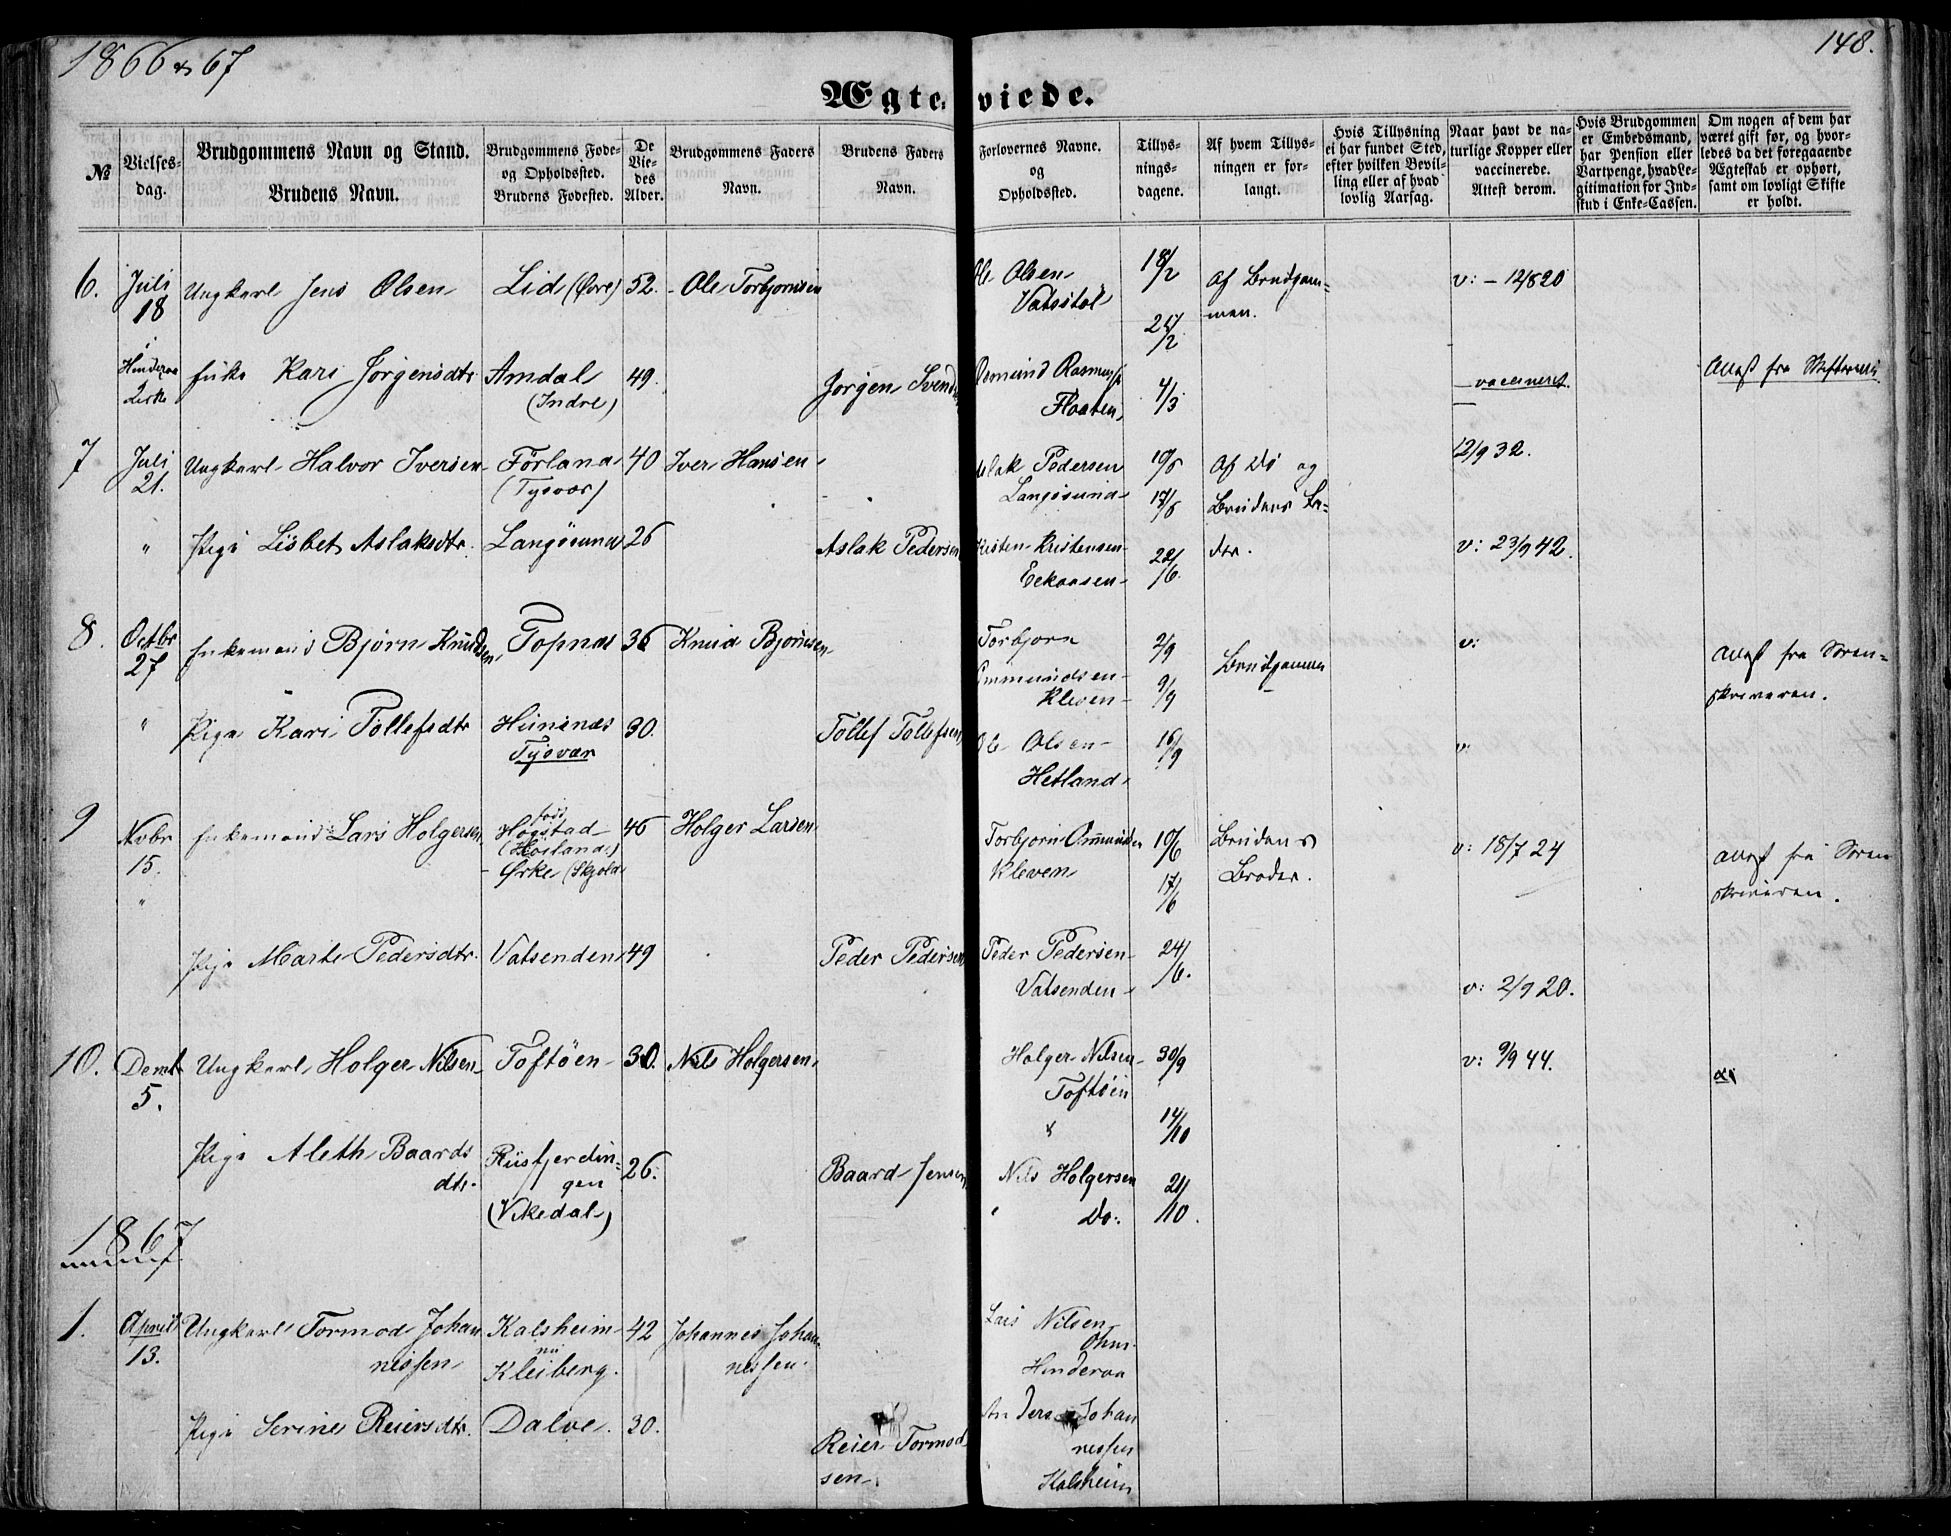 1866 & 67
148.
Ægteviede.
№
Vielses-
dag.
Brudgommens Navn og Stand.
Brudens Navn.
Brudgommens Føde-
og Opholdssted.
Brudens Fødested.
De
Vie-
des
Alder.
Brudgommens Faders
Navn.
Brudens Faders
Navn.
Forlovernes Navne.
og
Opholdssted.
Tillys-
nings-
dagene.
Af hvem Tillys-
ningen er for-
langt.
Hvis Tillysning
ei har fundet Sted,
efter hvilken Bevil-
ling eller af hvad
lovlig Aarsag.
Naar havt de na-
turlige Kopper eller
vaccinerede.
Attest derom.
Hvis Brudgommen
er Embedsmand,
har Pension eller
Vartpenge, hvad Le-
gitimation for Ind-
skud i Enke-Cassen.
Om nogen af dem har
været gift før, og hvor-
ledes da det foregaaende
Ægteskab er ophørt,
samt om lovligt Skifte
er holdt.
6. Juli 18 Ungkarl Jens Olsen Lid (Øvre) 52. Ole Torbjornsen Ole Olsen 18/2 Af Brudgom- v: - 12/8 20
Vatsstøl 25/2 men.
Hinderaa Kirke Enke Kari Jørgensdtr Amdal 49. Jørgen Svends Osmund Rasmuss 4/3 vaccineret. Attest fra Skifteretten
(Indre) Floaten
7 Juli 21. Ungkarl Halvor Iversen Førland 40 Iver Hansen Aslak Pedersen 10/6 Af Do og 12/9 32.
(Tysvær) Langøsund 17/6 Brudens Fa-
" Pige Lisbet Aslaksdtr. Langøsund 26 Aslak Pedersen Kristen Kristensen 24/6. der. v: 23/9 42.
8. Octbr 27 Enkemand Bjørn Knudsen, Topnæs 36 Knud Bjørnsen Torbjorn 2/9 Brudgommen v: Attest fra Soren-
Ommundsen 9/9 skriveren.
Kleven
" Pige Kari Tollefsdtr Hinenæs 30. Tollef Tollefsen Ole Olsen 16/9 v:
Tysvær Hetland
9 Nvbr 15. Enkemand Lars Holgersen fød. Høgstad 46 Holger Larsen Torbjorn Ommundsen 10/6 Brudens v: 18/7 24 Attest fra Soren
" (Hosland) Kleven 17/6 Broder. skriveren.
Ørke (Skjold)
Pige Marte Pedersdtr. Vatsenden 49 Peder Pedersen Peder Pedersen 24/6.
Vatsenden v: 2/9 20.
10. Decmb 5. Ungkarl Holger Nilsen Toftøen 30. Nils Holgersen Holger Nilsen 30/9 v: 9/9 44.
Toftøen
& 14/10
Pige Aleth Baards Riisfjerdin- 26. Baard Jensen Nils Holgersen 21/10.
dtr. gen Do:
(Vikedal)
1867
1. April 13. Ungkarl Tormod Johan Kalsheim 42 Johannes Johan Lars Nilsen
nessen nu nessen. Ohm
Kleiberg. Hinderaa
Pige Serine Reiersdtr. Dalve. 30. Reier Tormod Anders Johan
sen nessen
Kalsheim